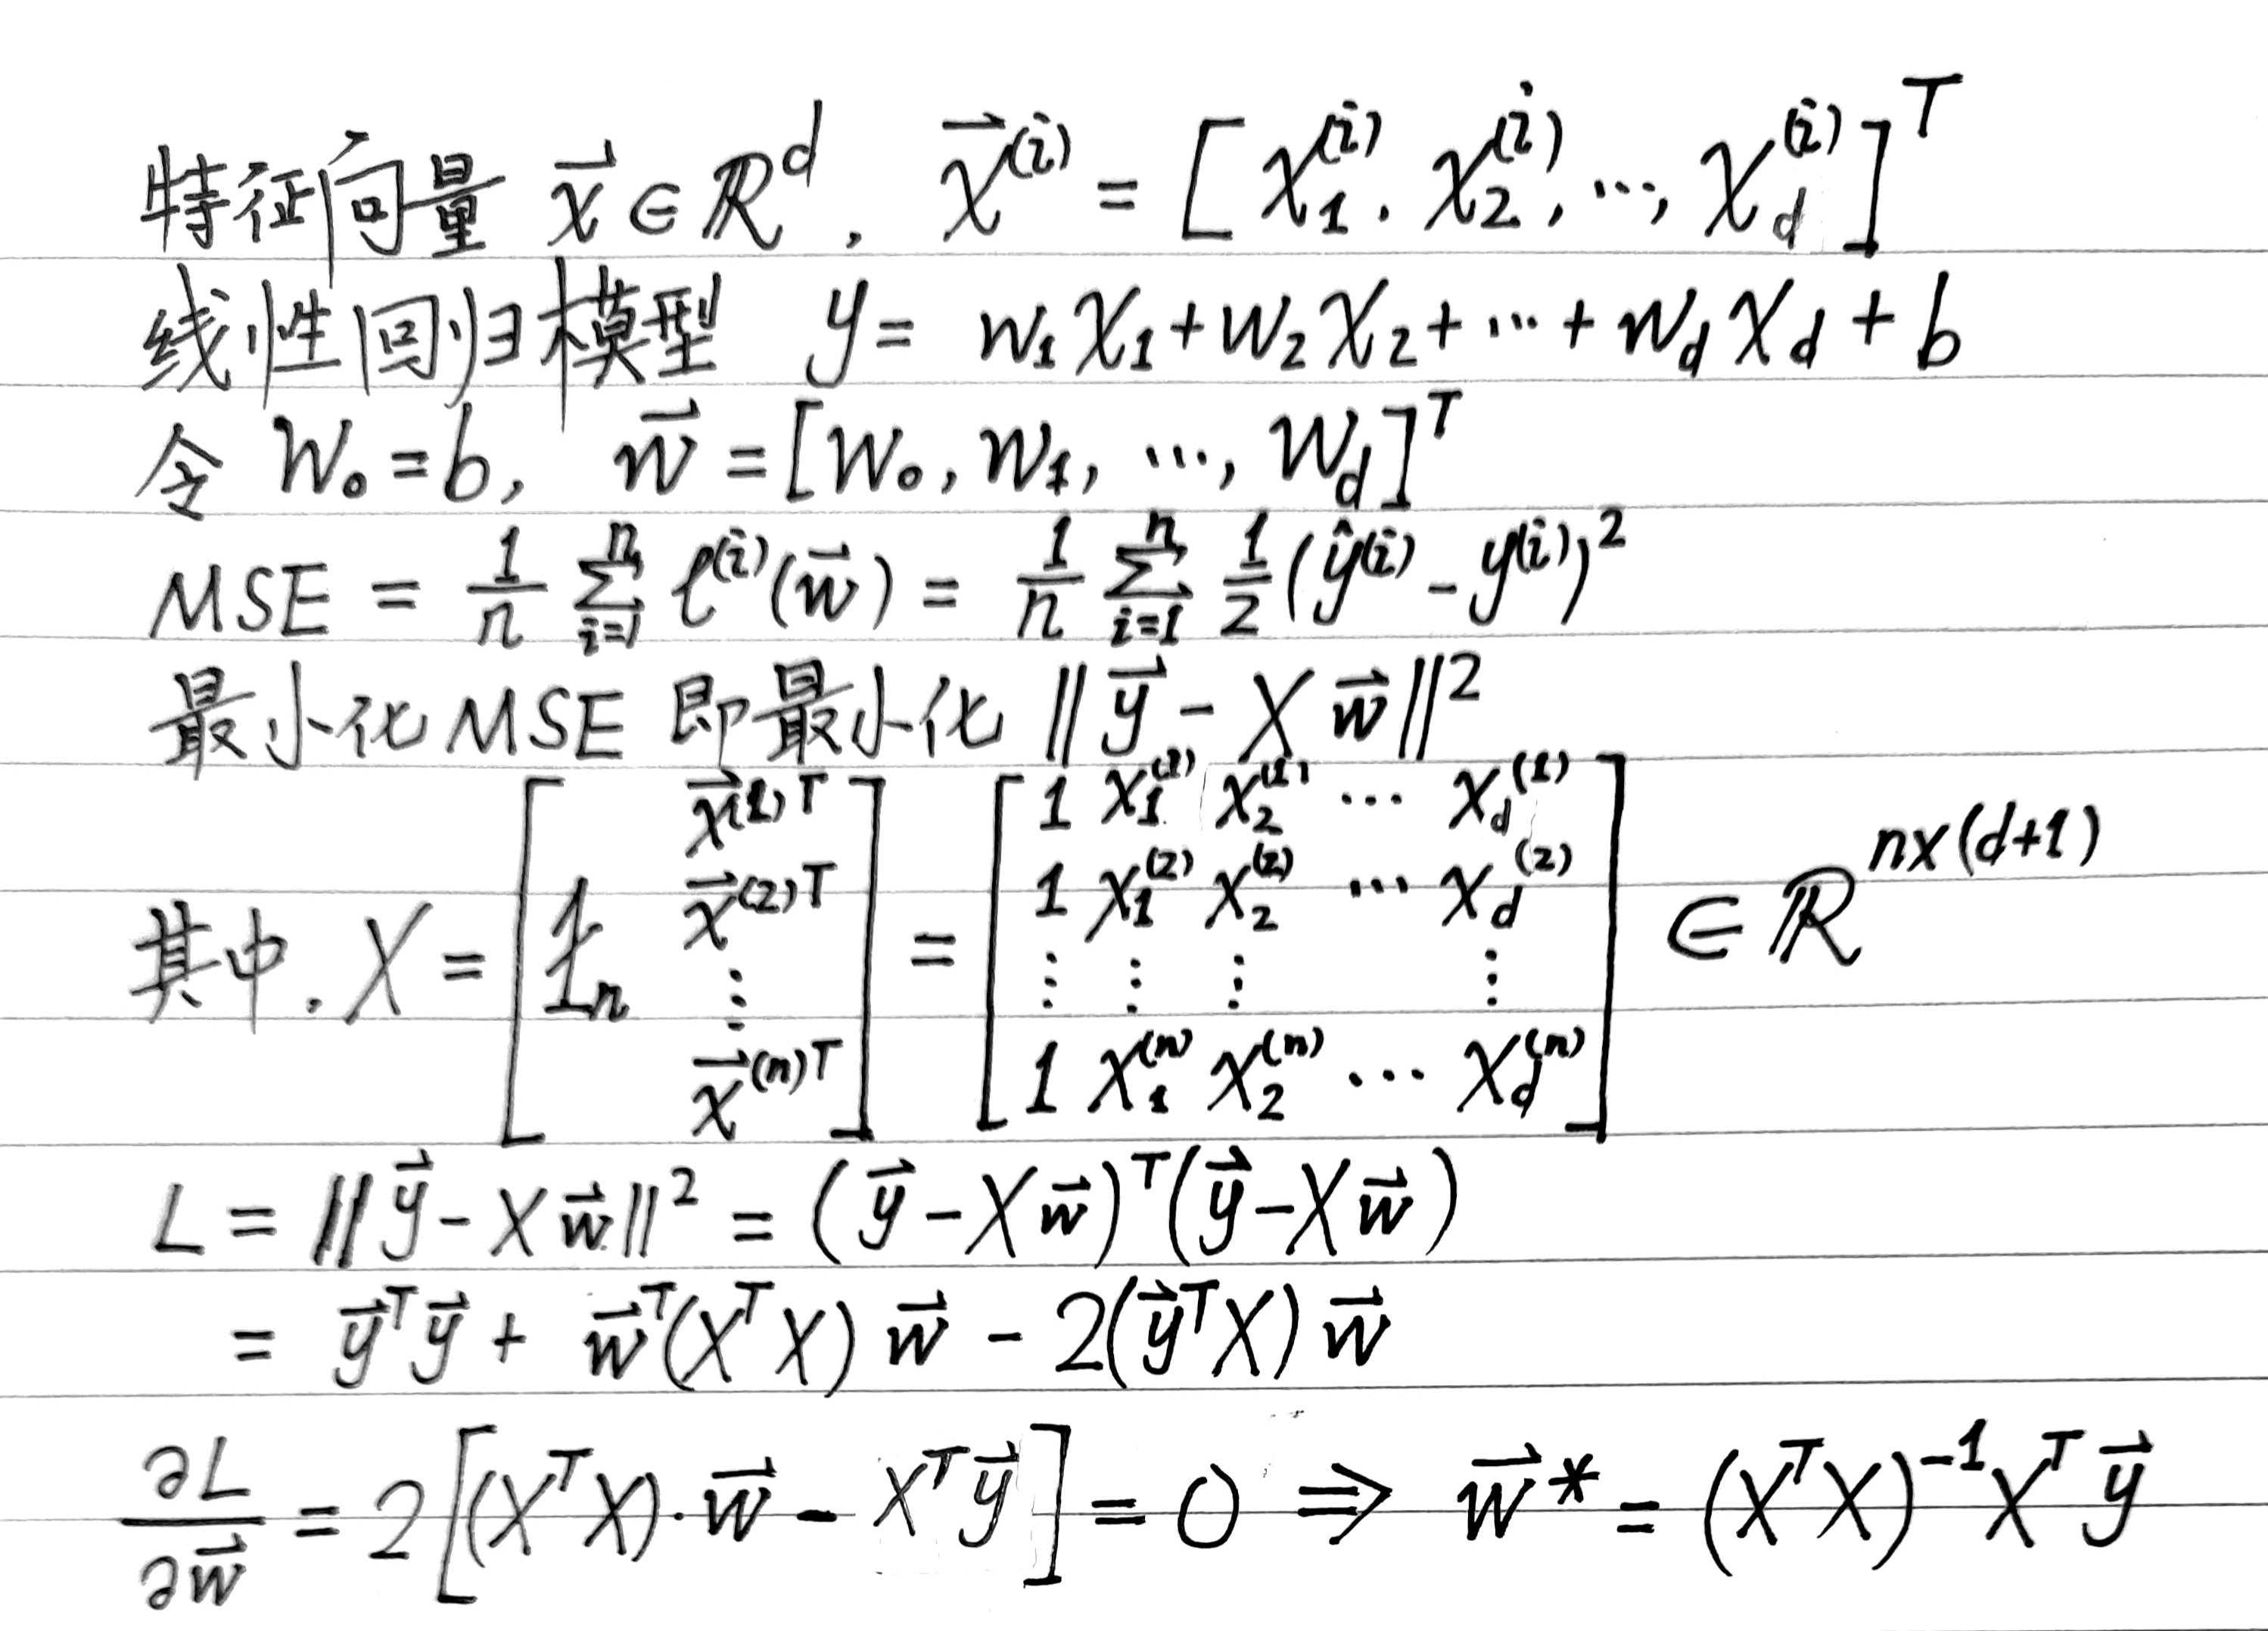 特征向量 $\vec{x} \in \mathbb{R}^d$, $\vec{x}^{(i)} = [x_1^{(i)}, x_2^{(i)}, \cdots, x_d^{(i)}]^T$
线性回归模型 $y = w_1 x_1 + w_2 x_2 + \cdots + w_d x_d + b$
令 $w_0 = b$, $\vec{w} = [w_0, w_1, \cdots, w_d]^T$
MSE $= \frac{1}{n} \sum_{i=1}^{n} \ell^{(i)}(\vec{w}) = \frac{1}{n} \sum_{i=1}^{n} \frac{1}{2} (\hat{y}^{(i)} - y^{(i)})^2$
最小化 MSE 即最小化 $\|\vec{y} - X\vec{w}\|^2$
其中, $X = \begin{bmatrix} & \vec{x}^{(1)T} \\ \mathbb{1}_n & \vec{x}^{(2)T} \\ & \vdots \\ & \vec{x}^{(n)T} \end{bmatrix} = \begin{bmatrix} 1 & x_1^{(1)} & x_2^{(1)} & \cdots & x_d^{(1)} \\ 1 & x_1^{(2)} & x_2^{(2)} & \cdots & x_d^{(2)} \\ \vdots & \vdots & \vdots & & \vdots \\ 1 & x_1^{(n)} & x_2^{(n)} & \cdots & x_d^{(n)} \end{bmatrix} \in \mathbb{R}^{n \times (d+1)}$
$L = \|\vec{y} - X\vec{w}\|^2 = (\vec{y} - X\vec{w})^T (\vec{y} - X\vec{w})$
$= \vec{y}^T \vec{y} + \vec{w}^T (X^T X) \vec{w} - 2(\vec{y}^T X) \vec{w}$
$\frac{\partial L}{\partial \vec{w}} = 2[(X^T X) \cdot \vec{w} - X^T \vec{y}] = 0 \Rightarrow \vec{w}^* = (X^T X)^{-1} X^T \vec{y}$